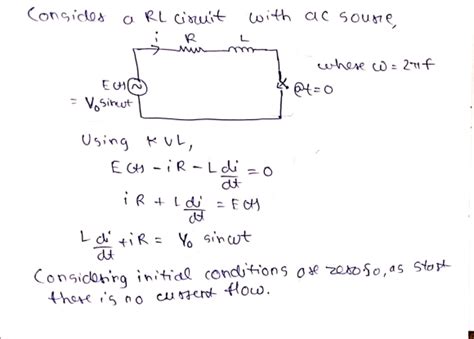 Consider a RL circuit with ac sourse,
i R L
where ω = 2πf
E(t)
@t=0
= V₀sinωt
Using KVL,
E(t) - iR - L di/dt = 0
iR + L di/dt = E(t)
L di/dt + iR = V₀ sinωt
Considering initial conditions are zero so, as start
there is no current flow.